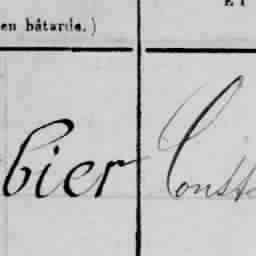 ET
en bâtarde.)
bier Const